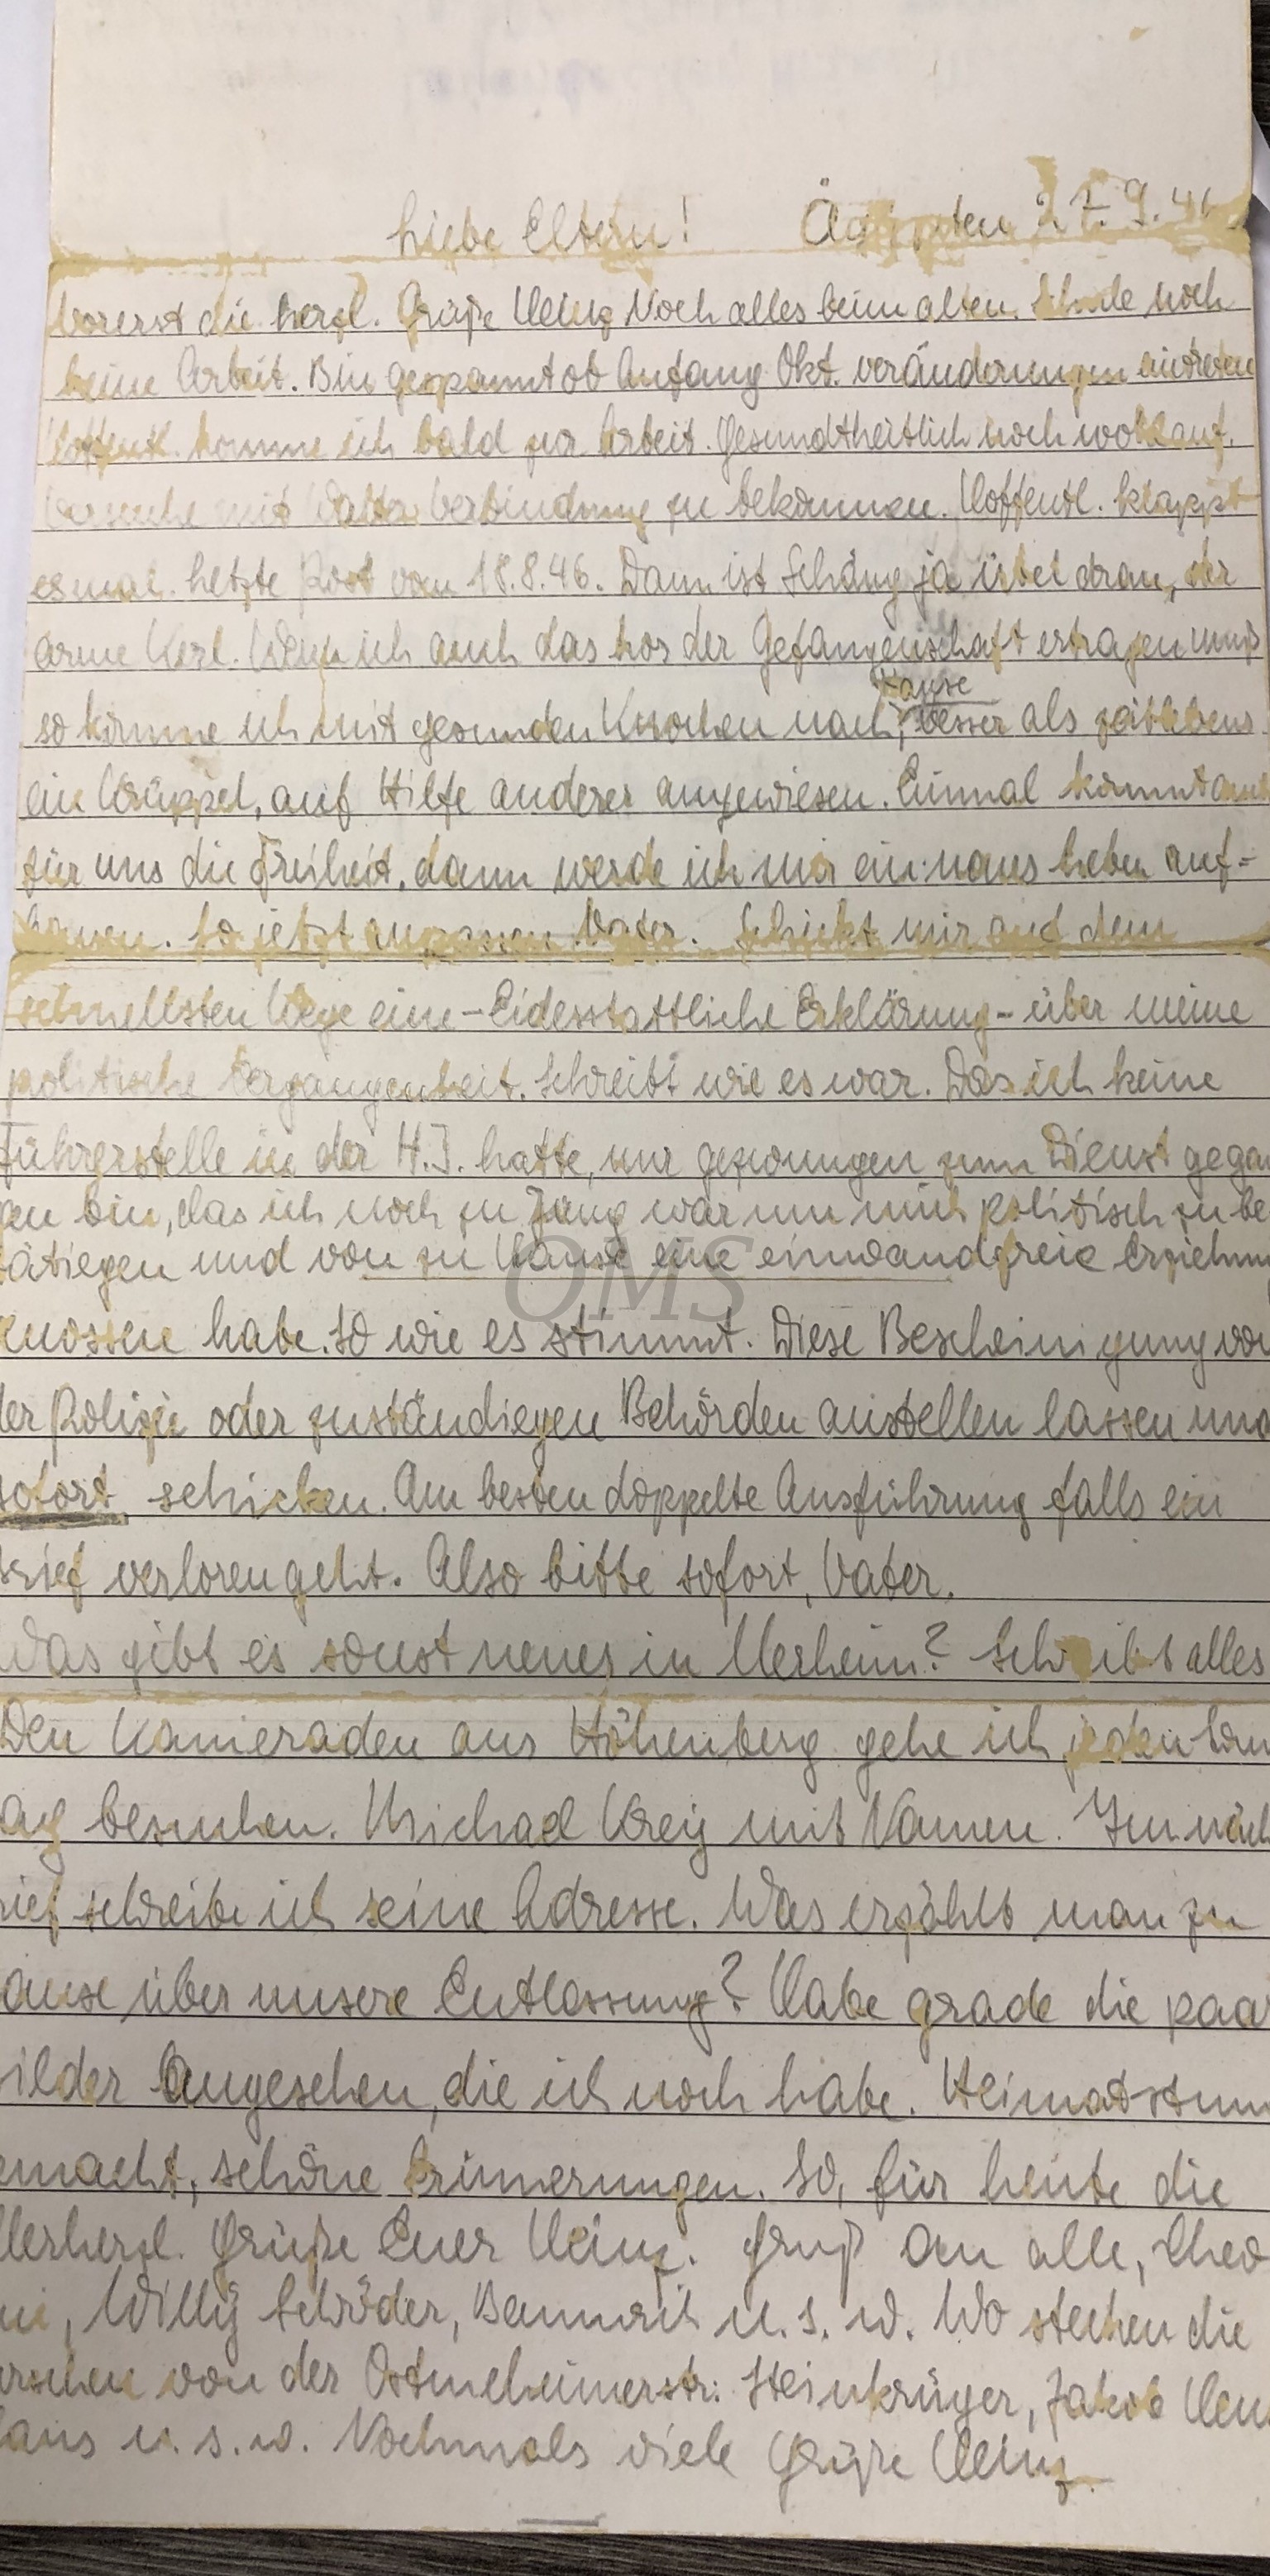 Liebe Eltern! Ägypten 27.9.46
Vorerst die herzl. Grüße Heinz Noch alles beim alten. Ende noch
keine Arbeit. Bin gespannt ob Anfang Okt. veränderungen eintreten
Hoffentl. komme ich bald zur Arbeit. Gesundtheitlich noch wohlauf.
Versuche mit Walter Verbindung zu bekommen. Hoffentl. klappt
es mal. Letzte Post vom 18.8.46. Dann ist Schäng ja übel dran, der
arme Kerl. Wenn ich auch das Los der Gefangenschaft ertragen muß
so komme ich mit gesunden Knochen nach Hause, besser als zeitlebens
ein Krüppel, auf Hilfe anderer angewiesen. Einmal kommt auch
für uns die Freiheit, dann werde ich mir ein neues Leben auf-
bauen. So jetzt aufpassen Vater. Schickt mir auf dem
schnellsten Wege eine - Eidesstattliche Erklärung - über meine
politische Vergangenheit. Schreibt wie es war. Das ich keine
Führerstelle in der H.J. hatte, nur gezwungen zum Dienst gegan
gen bin, das ich noch zu Jung war um mich politisch zu be
tätiegen und von zu Hause eine einwandfreie Erziehung
nossen habe. So wie es stimmt. Diese Bescheinigung von
der Polizei oder zuständiegen Behörden austellen lassen und
sofort schicken. Am besten doppelte Ausführung falls ein
Brief verloren geht. Also bitte sofort, Vater.
Was gibt es sonst neues in Merheim? Schreibt alles
Den Kameraden aus Höhenberg gehe ich jeden Sonn
ag besuchen. Michael Krey mit Namen. Im näch
rief schreibe ich seine Adresse. Was erzählt man zu
ause über unsere Entlassung? Habe grade die paar
ilder angesehen, die ich noch habe. Heimatstun
emacht, schöne Erinnerungen. So, für heute die
llerherzl. Grüße Euer Heinz. Gruß an alle, Theo
Willy Schröder, u.s.w. Wo stecken die
urschen von der Ostmeheimerstr. Steinkrüger, Jakob
Hans u.s.w. Nochmals viele Grüße Heinz
QMS